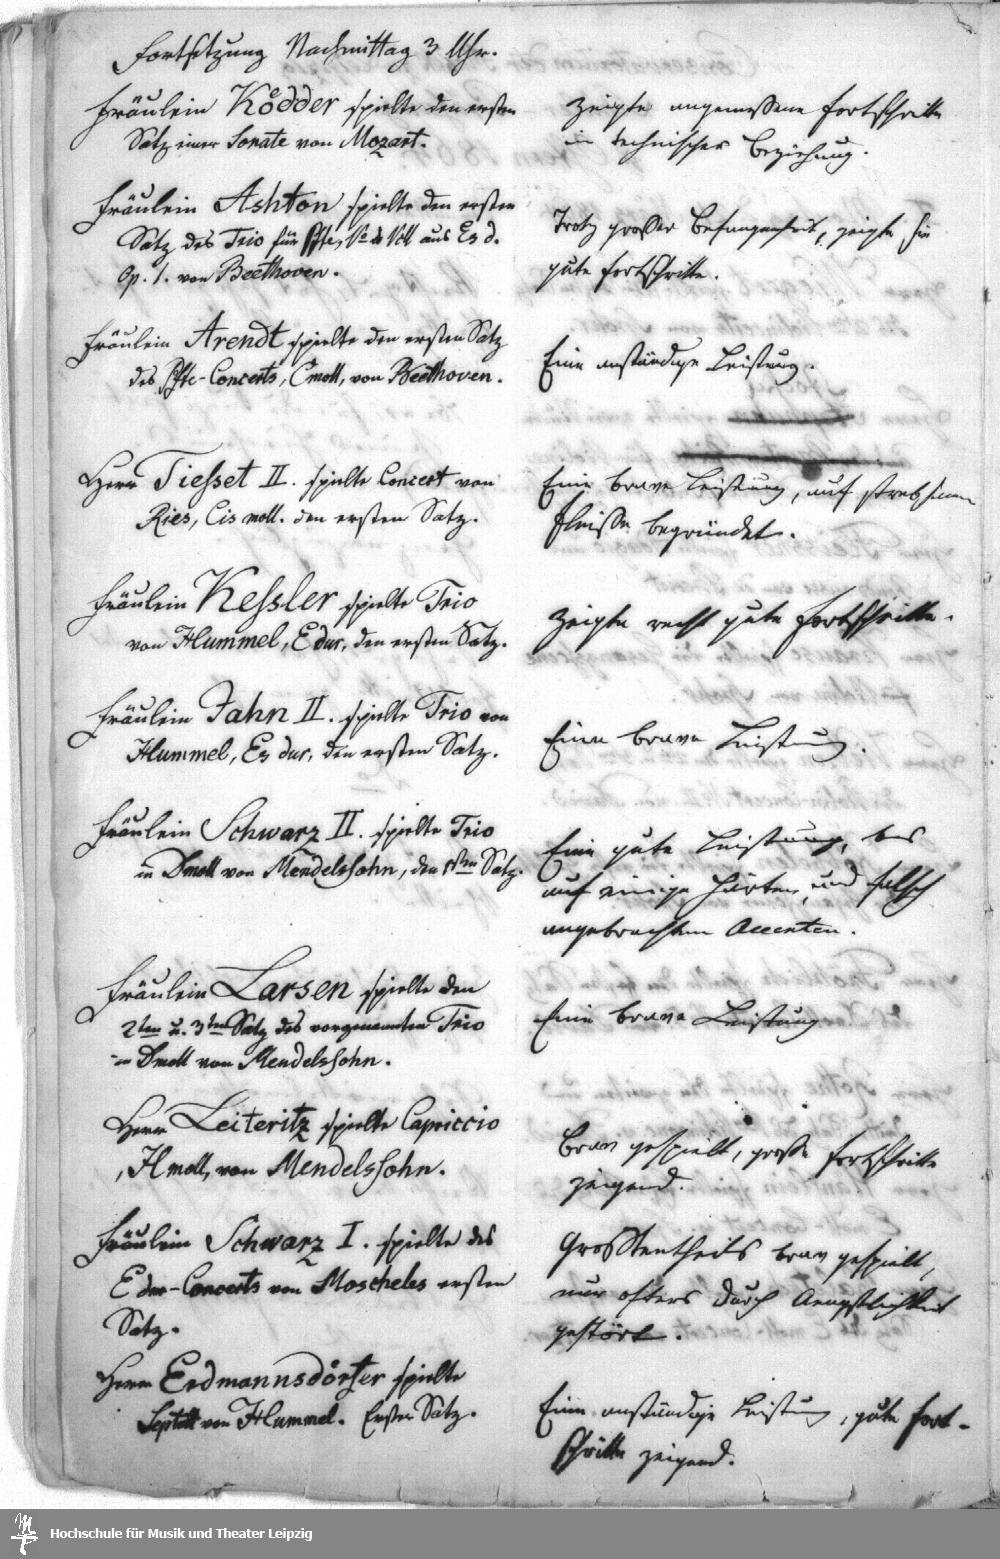 Fortsetzung Nachmittag 3 Uhr.
Fräulein Ködder spielte den ersten
Satz einer Sonate von Mozart.
zeigte angemessene Fortschritte
in technischer Beziehung.
Fräulein Ashton spielte den ersten
Satz des Trio für Pfte, Vo & Vcll aus Es d.
Op. 1. von Beethoven.
Trotz grosser Befangenheit, zeigte sie
gute Fortschritte.
Fräulein Arendt spielte den ersten Satz
des Pfte-Concerts, C moll, von Beethoven.
Eine anständige Leistung.
Herr Tiesset II. spielte Concert von
Ries, Cis moll. den ersten Satz.
Eine brave Leistung, auf strebsamen
Fleisse begründet.
Fräulein Kessler spielte Trio
von Hummel, E dur, den ersten Satz.
Zeigte recht gute Fortschritte.
Fräulein Jahn II. spielte Trio von
Hummel, Es dur, den ersten Satz.
Eine brave Leistung.
Fräulein Schwarz II. spielte Trio
in D moll von Mendelssohn, den 1sten Satz.
Eine gute Leistung, bis
auf einige Härten, und falsch
angebrachten Accenten.
Fräulein Larsen spielte den
2ten u. 3ten Satz des vorgenannten Trio
in D moll von Mendelssohn.
Eine brave Leistung
Herr Leiteritz spielte Capriccio
, H moll, von Mendelssohn.
Brav gespielt, grosse Fortschritte
zeigend.
Fräulein Schwarz I. spielte des
E dur-Concerts von Moscheles ersten
Satz.
Grosstentheils brav gespielt,
nur öfters durch Aengstlichkeit
gestört.
Herr Erdmannsdörfer spielte
Septett von Hummel. Erster Satz.
Eine anständige Leistung, gute Fort-
schritte zeigend.
Hochschule für Musik und Theater Leipzig